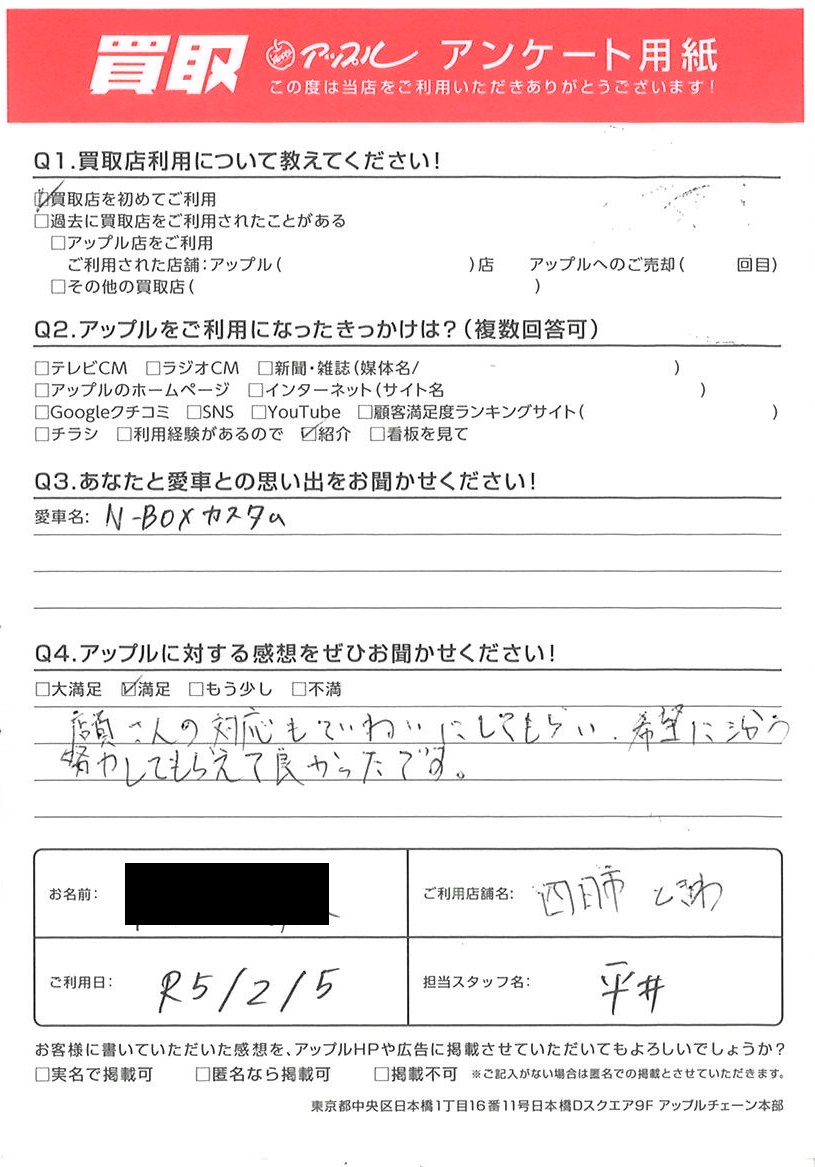 買取 アップル アンケート用紙
この度は当店をご利用いただきありがとうございます!
Q1.買取店利用について教えてください!
☑買取店を初めてご利用
□過去に買取店をご利用されたことがある
□アップル店をご利用
ご利用された店舗:アップル( )店 アップルへのご売却( 回目)
□その他の買取店( )
Q2.アップルをご利用になったきっかけは?(複数回答可)
□テレビCM □ラジオCM □新聞・雑誌(媒体名/ )
□アップルのホームページ □インターネット(サイト名 )
□Googleクチコミ □SNS □YouTube □顧客満足度ランキングサイト( )
□チラシ □利用経験があるので ☑紹介 □看板を見て
Q3.あなたと愛車との思い出をお聞かせください!
愛車名: N-BOXカスタム
Q4.アップルに対する感想をぜひお聞かせください!
□大満足 ☑満足 □もう少し □不満
店員さんの対応もていねいにしてもらい、希望に沿う
努力してもらえて良かったです。
お名前:
ご利用店舗名: 四日市 ときわ
ご利用日: R5/2/5
担当スタッフ名: 平井
お客様に書いていただいた感想を、アップルHPや広告に掲載させていただいてもよろしいでしょうか?
□実名で掲載可 □匿名なら掲載可 □掲載不可 ※ご記入がない場合は匿名での掲載とさせていただきます。
東京都中央区日本橋1丁目16番11号日本橋Dスクエア9F アップルチェーン本部